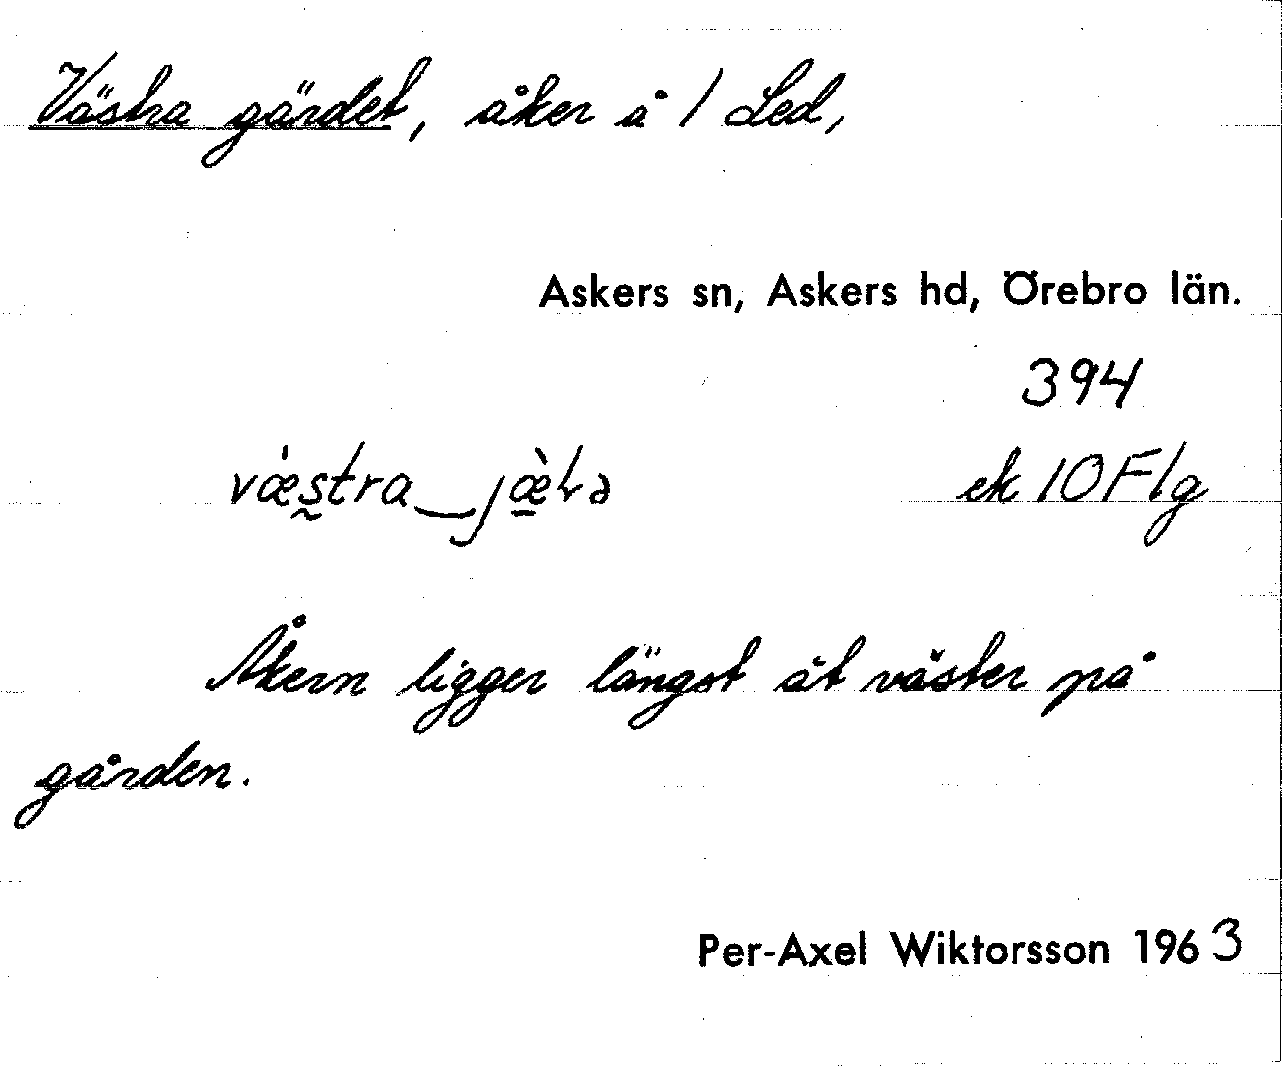 Västra gärdet, åker å 1 Led,
Askers sn, Askers hd, Örebro län.
394
ek 10 F1g
Åkern ligger längst åt väster på
gården.
Per-Axel Wiktorsson 1963